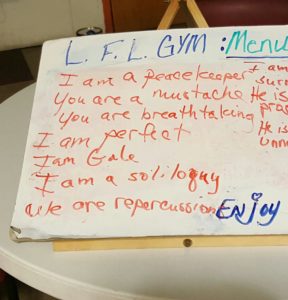 L. F. L. GYM : Menu
I am a peacekeeper
You are a mustache
You are breathtaking
I am perfect
I am Gale
I am a soliloquy
We are repercussion
Enjoy
I am
He is
He is